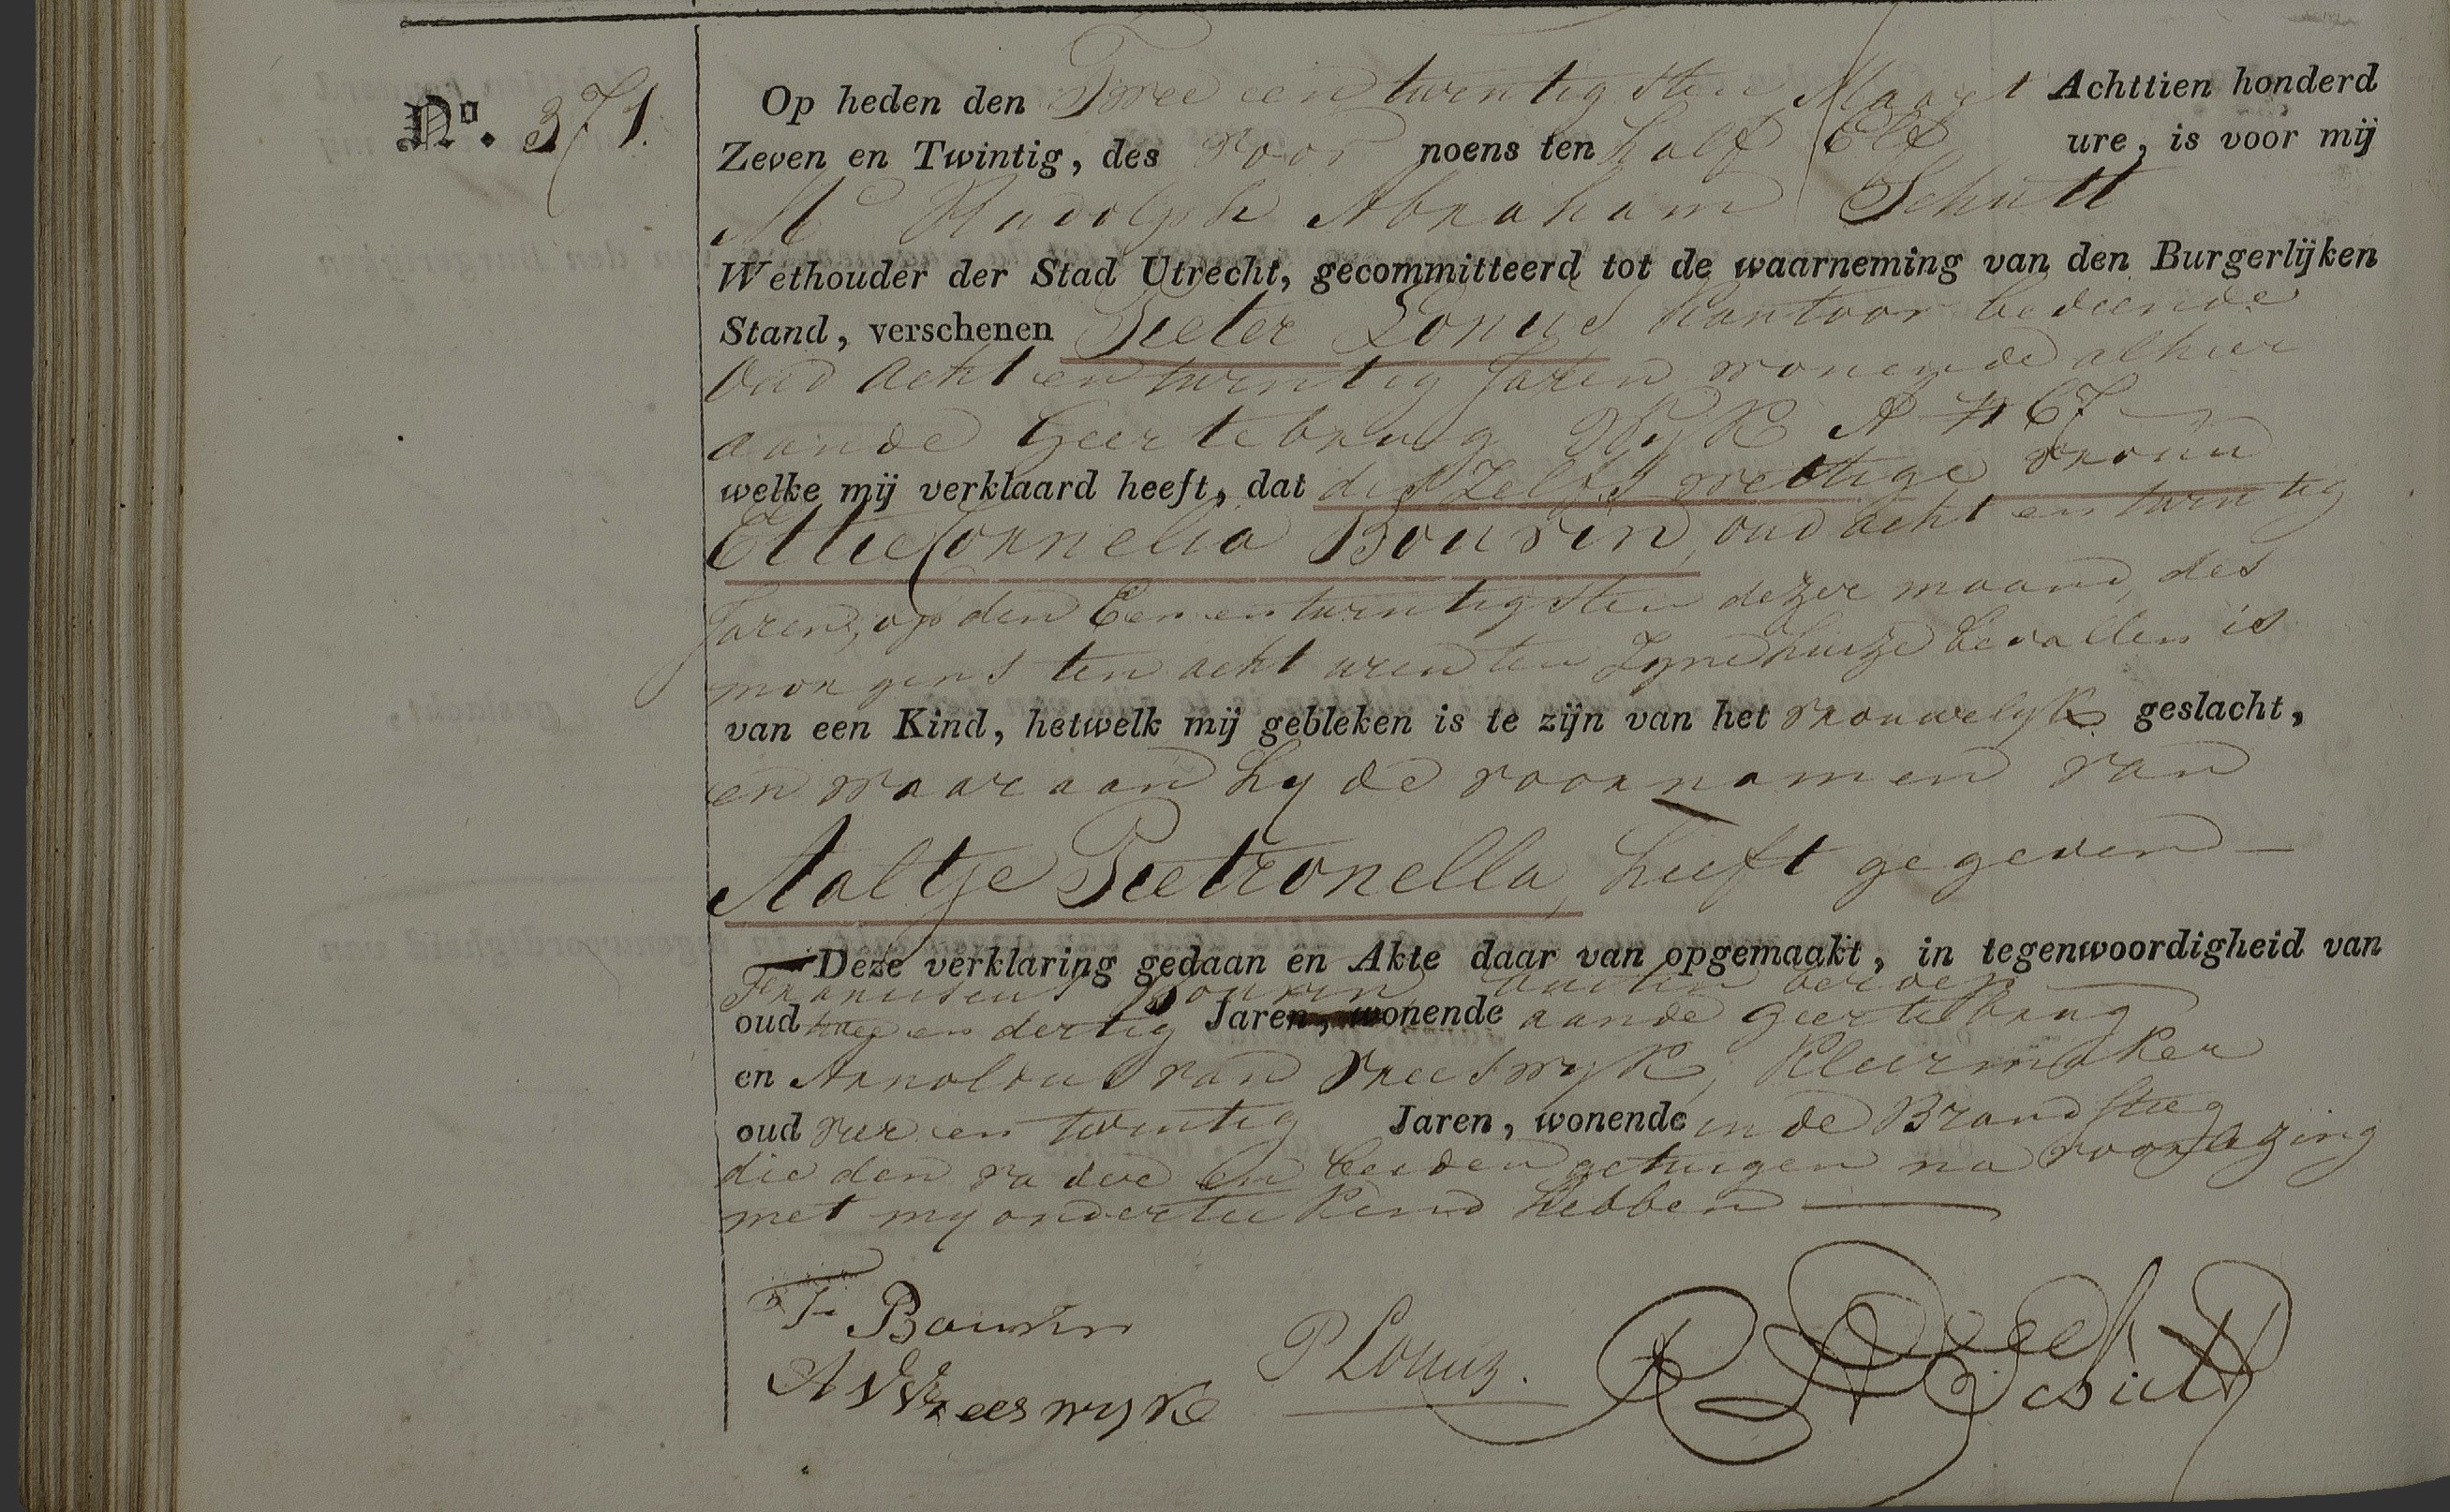 No. 371.
Op heden den Twee een twentigsten Maart Achttien honderd
Zeven en Twintig, des voor noens ten half Elf ure, is voor mij
Mr Rudolph Abraham Schutt
Wethouder der Stad Utrecht, gecommitteerd tot de waarneming van den Burgerlijken
Stand, verschenen Pieter Lonus kantoor bediende
oud acht en twintig Jaren wonende alhier
aan de Geertebrug Wyk A N 67
welke mij verklaard heeft, dat deszelfs wettige vrouw
Ettie Cornelia Bouvin, oud acht en twintig
Jaren, op den Een en twintigsten dezer maand, des
morgens ten acht uren ten Zynen huize bevallen is
van een Kind, hetwelk mij gebleken is te zijn van het vrouwelyk geslacht,
en waaraan hy de voornamen van
Aaltje Pietronella, heeft gegeven
Deze verklaring gedaan en Akte daar van opgemaakt, in tegenwoordigheid van
Franciscus Bouvin buiten beroep
oud twee en dertig Jaren, wonende aan de Geertebrug
en Arnoldus van Vreeswyk, Kleermaker
oud vier en twintig Jaren, wonende in de Brandsteeg
die den vader en beiden getuigen na voorlezing
met my onderteekend hebben
F Bouvin
A V Vreeswyk
P Lonus.
R A Schutt